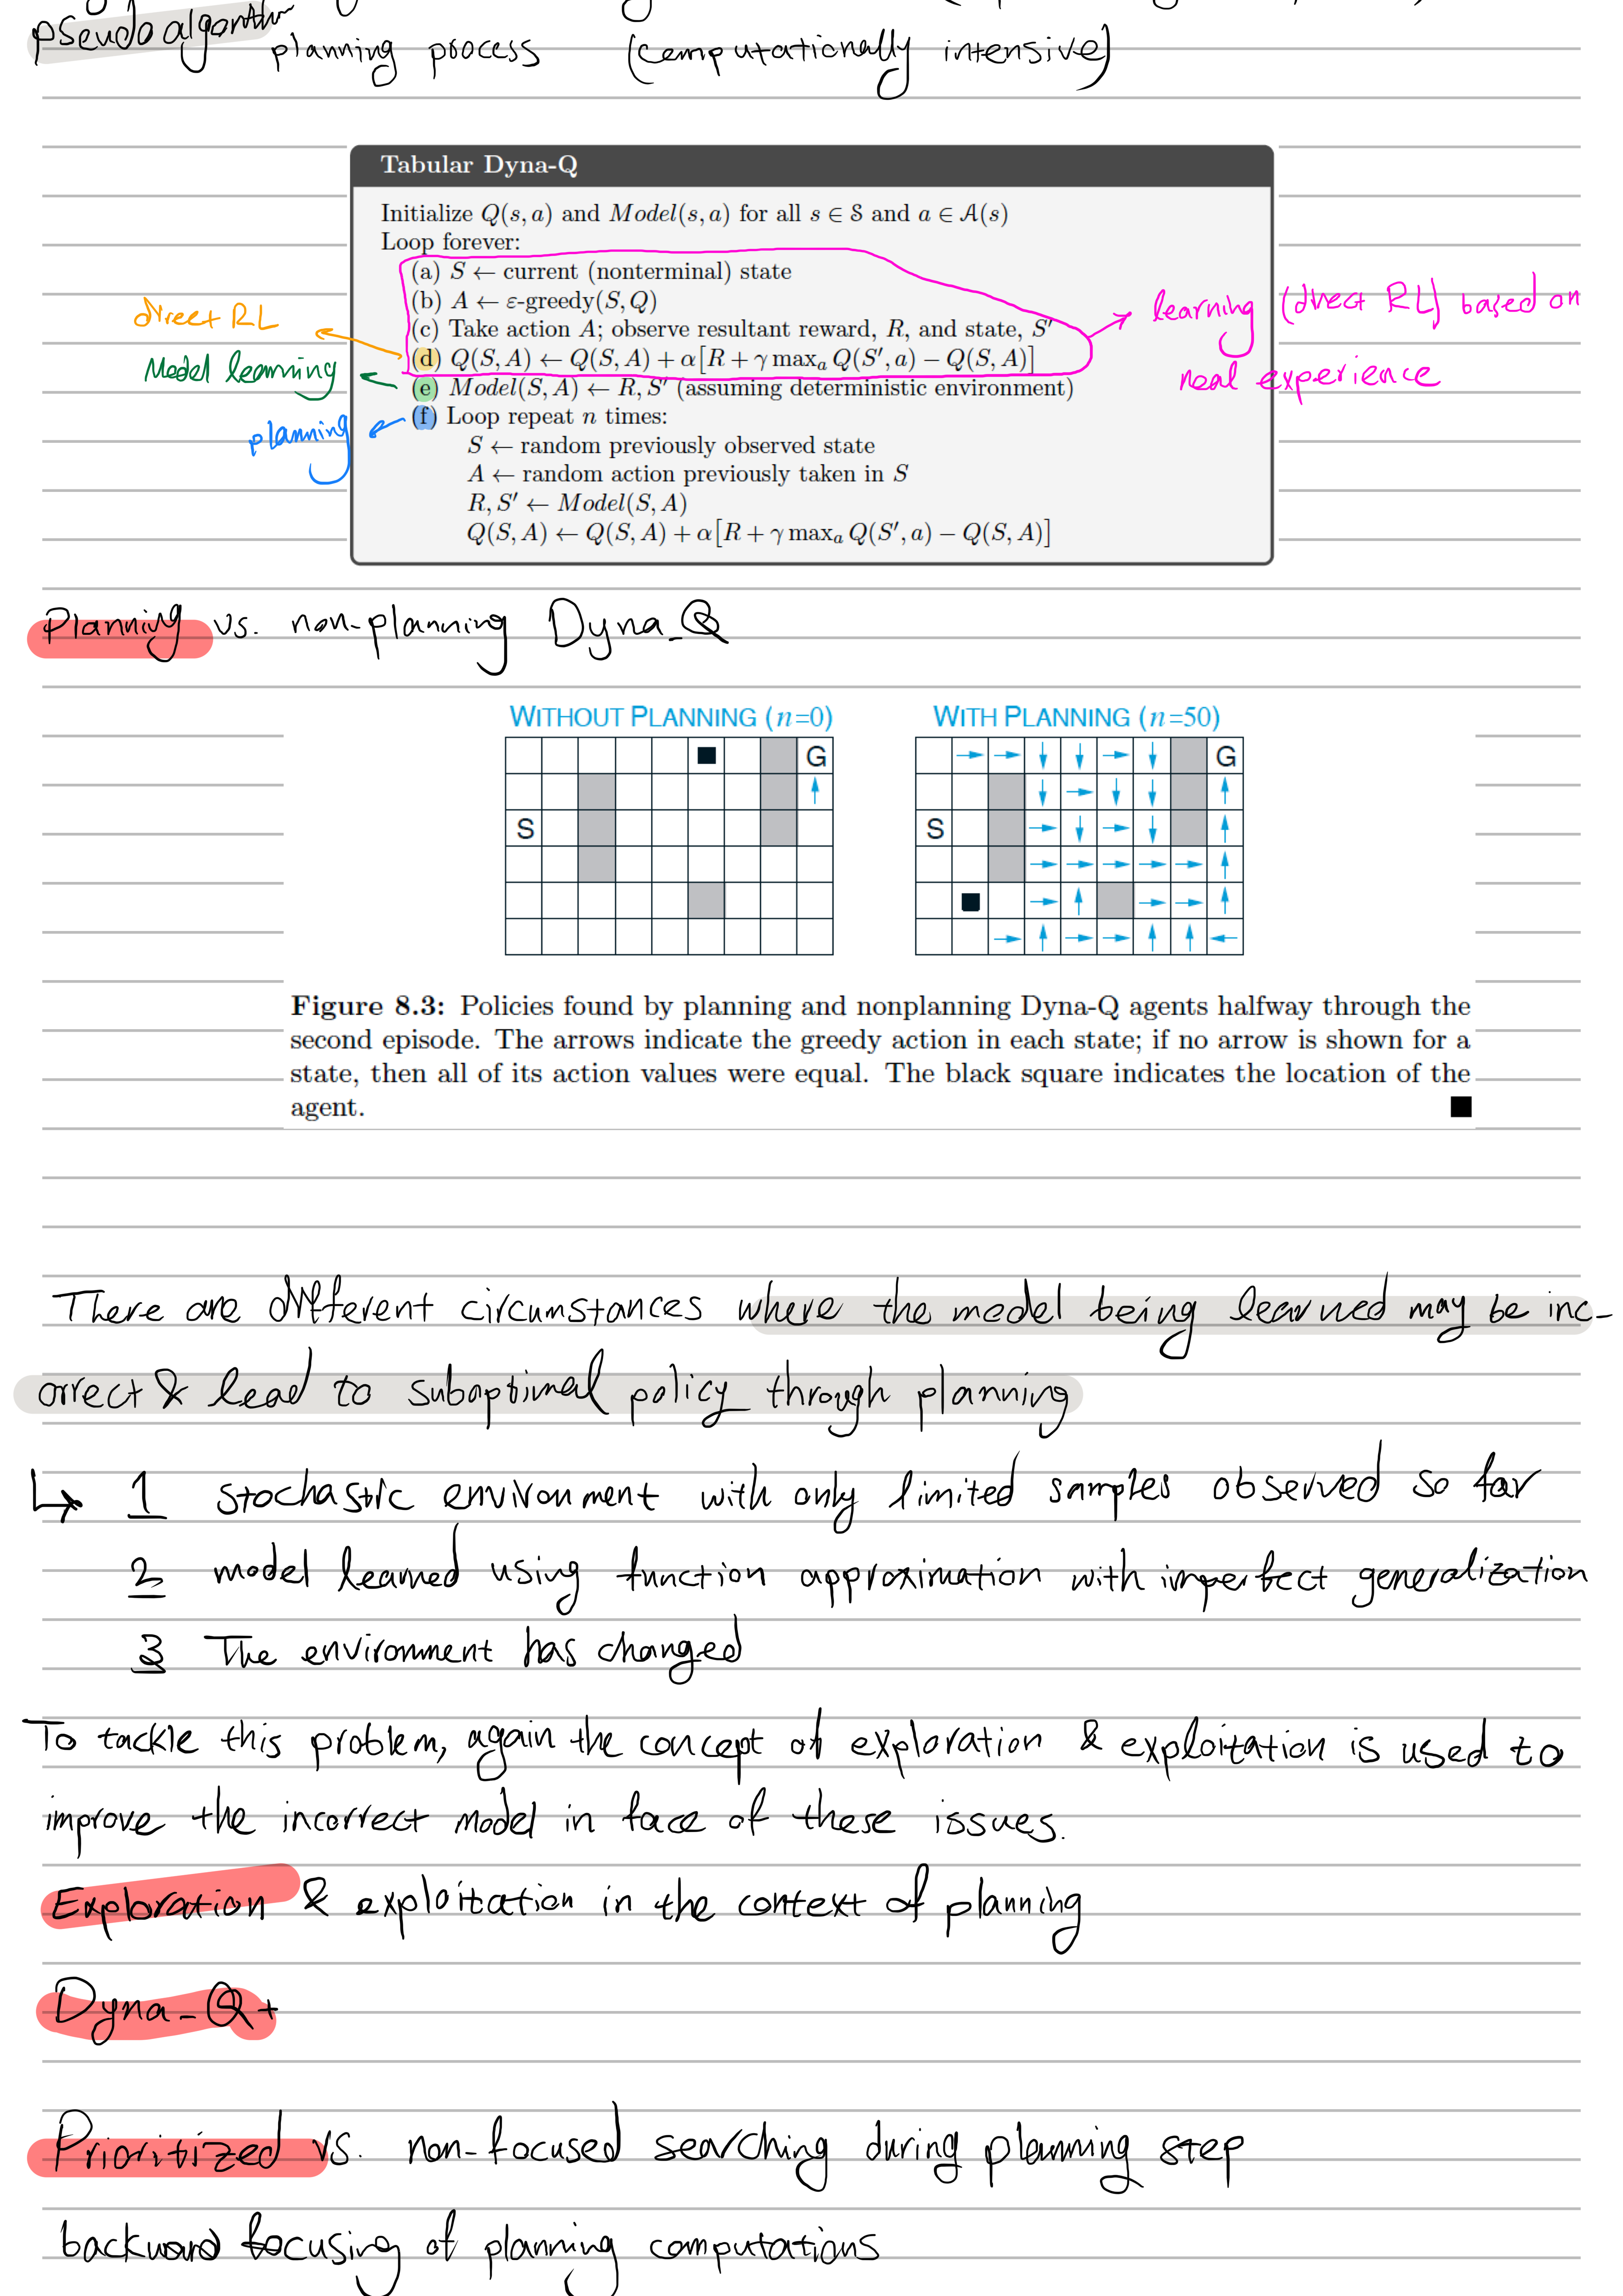 pseudo algorithm
planning process (computationally intensive)
Tabular Dyna-Q
Initialize Q(s, a) and Model(s, a) for all s ∈ S and a ∈ A(s)
Loop forever:
(a) S ← current (nonterminal) state
(b) A ← ε-greedy(S, Q)
(c) Take action A; observe resultant reward, R, and state, S′
(d) Q(S, A) ← Q(S, A) + α[R + γ maxₐ Q(S′, a) − Q(S, A)]
(e) Model(S, A) ← R, S′ (assuming deterministic environment)
(f) Loop repeat n times:
S ← random previously observed state
A ← random action previously taken in S
R, S′ ← Model(S, A)
Q(S, A) ← Q(S, A) + α[R + γ maxₐ Q(S′, a) − Q(S, A)]
direct RL
Model learning
planning
learning (direct RL) based on
real experience
Planning vs. non-planning Dyna_Q
WITHOUT PLANNING (n=0)
WITH PLANNING (n=50)
G
S
G
S
Figure 8.3: Policies found by planning and nonplanning Dyna-Q agents halfway through the
second episode. The arrows indicate the greedy action in each state; if no arrow is shown for a
state, then all of its action values were equal. The black square indicates the location of the
agent.
There are different circumstances where the model being learned may be inc-
orrect & lead to suboptimal policy through planning
↳ 1 stochastic environment with only limited samples observed so far
2 model learned using function approximation with imperfect generalization
3 The environment has changed
To tackle this problem, again the concept of exploration & exploitation is used to
improve the incorrect model in face of these issues.
Exploration & exploitation in the context of planning
Dyna-Q+
Prioritized vs. non-focused searching during planning step
backward focusing of planning computations